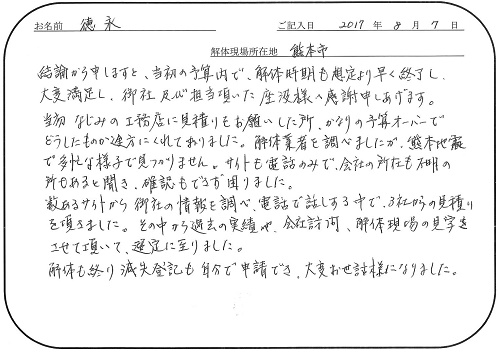 お名前 徳永 ご記入日 2017 年 8 月 7 日
解体現場所在地 熊本市
結論から申しますと、当初の予算内で、解体時期も想定より早く終了し、
大変満足し、御社及び担当頂いた 様へ感謝申しあげます。
当初 なじみの工務店に見積りをお願いした所、かなりの予算オーバーで
どうしたものか途方にくれておりました。解体業者を調べましたが、熊本地震
で多忙な様子で見つかりません。サイトも電話のみで、会社の所在も不明の
所もあると聞き、確認もできず困りました。
数あるサイトから御社の情報を調べ、電話で話しする中で、3社からの見積り
を頂きました。その中から過去の実績や、会社訪問、解体現場の見学を
させて頂いて、選定に至りました。
解体も終り滅失登記も自分で申請でき、大変お世話様になりました。